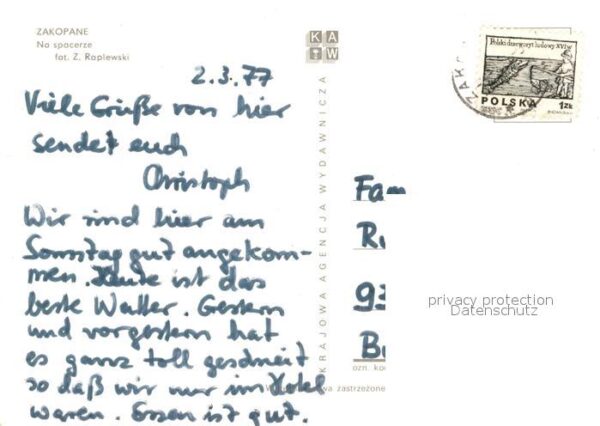 ZAKOPANE
Na spacerze
fot. Z. Raplewski
KAW
KRAJOWA AGENCJA WYDAWNICZA
2.3.77
Viele Grüße von hier
sendet euch
Christoph
Wir sind hier am
Sonntag gut angekom-
men. Heute ist das
beste Wetter. Gestern
und vorgestern hat
es ganz toll geschneit
so daß wir nur im Hotel
waren. Essen ist gut.
Polski drzeworyt ludowy XVI w.
POLSKA 1 ZŁ
ZAK
Fam
R
93
B
ozn. ko
zastrzeżone
privacy protection
Datenschutz